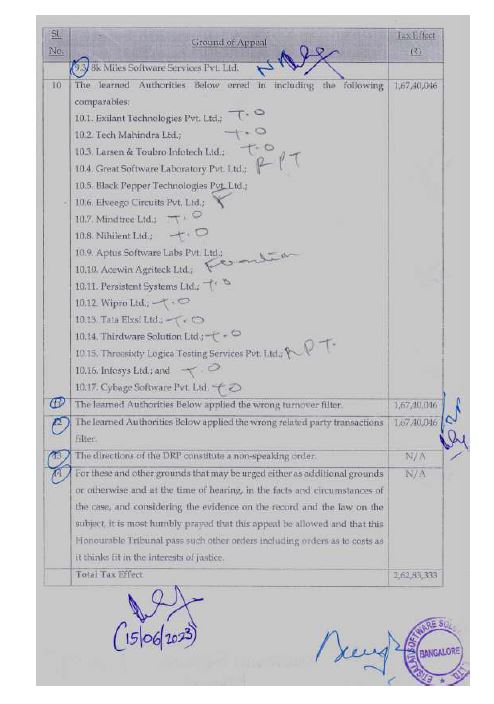 Sl. No.
Ground of Appeal
Tax Effect (₹)
9.3. 8k Miles Software Services Pvt. Ltd.
10 The learned Authorities Below erred in including the following 1,67,40,046
comparables:
10.1. Exilant Technologies Pvt. Ltd.; T.O
10.2. Tech Mahindra Ltd.; T.O
10.3. Larsen & Toubro Infotech Ltd.; T.O
10.4. Great Software Laboratory Pvt. Ltd.; RPT
10.5. Black Pepper Technologies Pvt. Ltd.;
10.6. Elveego Circuits Pvt. Ltd.; F
10.7. Mindtree Ltd.; T.O
10.8. Nihilent Ltd.; T.O
10.9. Aptus Software Labs Pvt. Ltd.;
10.10. Acewin Agriteck Ltd.;
10.11. Persistent Systems Ltd.; T.O
10.12. Wipro Ltd.; T.O
10.13. Tata Elxsi Ltd.; T.O
10.14. Thirdware Solution Ltd.; T.O
10.15. Threesixty Logica Testing Services Pvt. Ltd.; RPT.
10.16. Infosys Ltd.; and T.O
10.17. Cybage Software Pvt. Ltd. TO
11 The learned Authorities Below applied the wrong turnover filter. 1,67,40,046
12 The learned Authorities Below applied the wrong related party transactions 1,67,40,046
filter.
13 The directions of the DRP constitute a non-speaking order. N/A
14 For these and other grounds that may be urged either as additional grounds N/A
or otherwise and at the time of hearing, in the facts and circumstances of
the case, and considering the evidence on the record and the law on the
subject, it is most humbly prayed that this appeal be allowed and that this
Honourable Tribunal pass such other orders including orders as to costs as
it thinks fit in the interests of justice.
Total Tax Effect 2,62,83,333
(15/06/2023)
BANGALORE